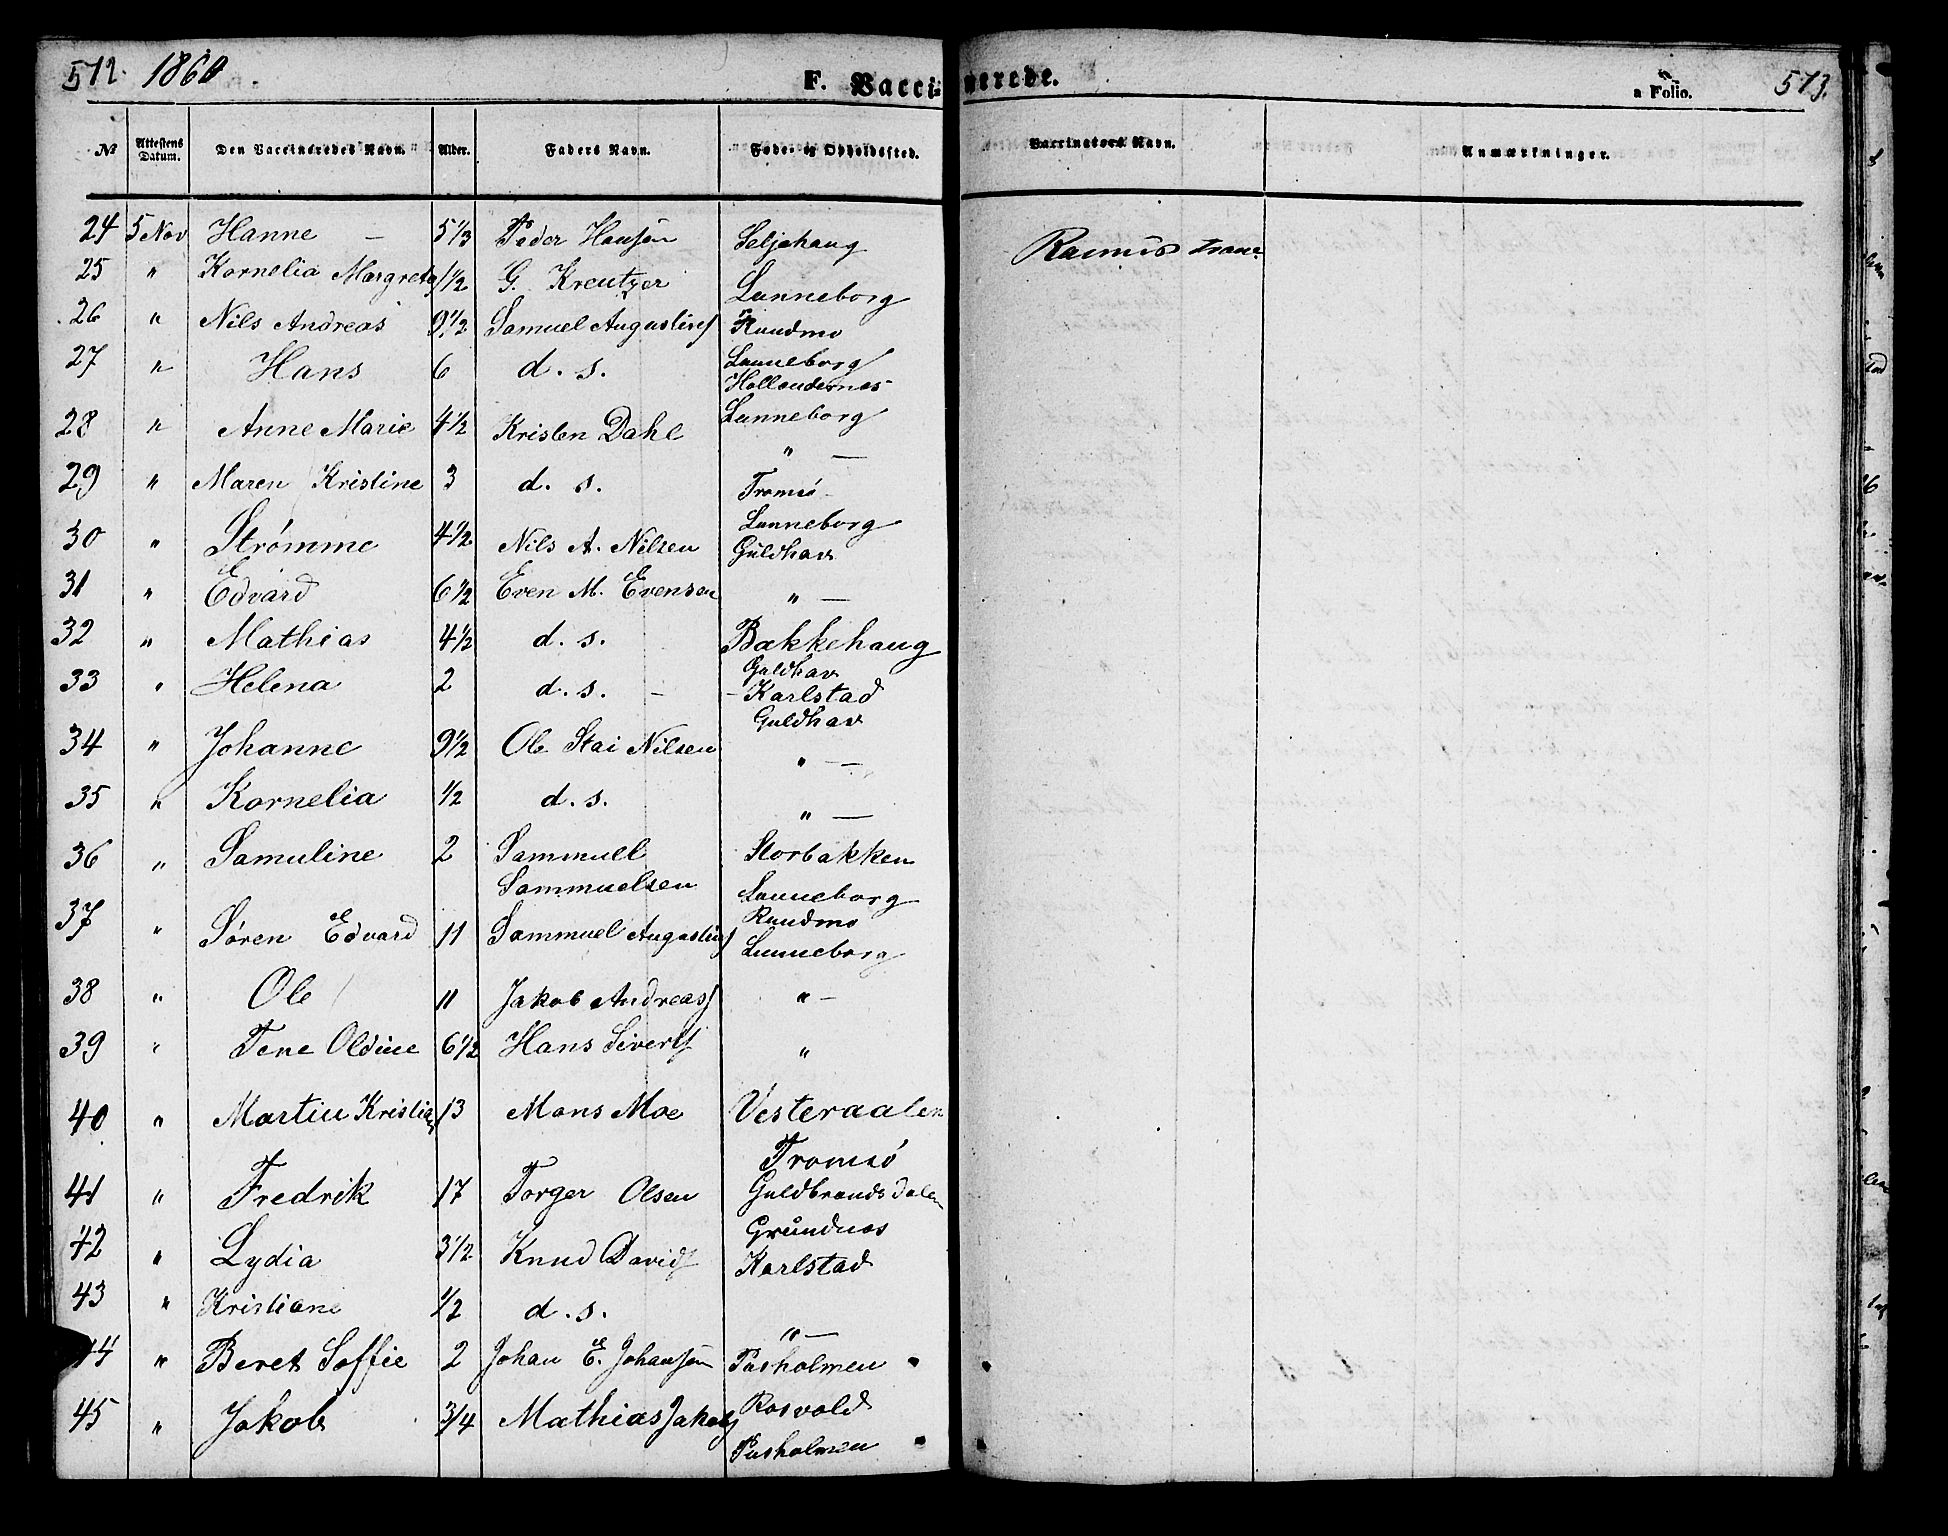 512. 1860 F. Vaccinerede. a Folio. 573.
№ Attestens Datum. Den Vaccineredes Navn. Alder. Faders Navn. Føde- og Opholdssted. Vaccinators Navn. Anmærkninger.
24 5 Nov Hanne – 5 1/3 Peder Hansen Seljehaug Rasmus
25 " Kornelia Margrete 1 1/2 G. Kreutzer Lunneborg
26 " Nils Andreas 9 1/2 Samuel Augustines Rundmo
Lunneborg
27 " Hans 6 d. s. Hollendernæs
Lunneborg
28 " Anne Marie 4 1/2 Kristen Dahl " —
29 " Maren Kristine 3 d. s. Tromsö
Lunneborg
30 " Strømme 4 1/2 Nils A. Nilsen Guldhav
31 " Edvard 6 1/2 Even M. Evensen " —
32 " Mathias 4 1/2 d. s. Bakkehaug
Guldhav
33 " Helena 2 d. s. – – Karlstad
Guldhav
34 " Johanne 9 1/2 Ole Stai Nilsen " —
35 " Kornelia 1/2 d. s. " —
36 " Samuline 2 Sammuel Storbakken
Sammuelsen Lunneborg
37 " Søren Edvard 11 Sammuel Augustins Rundmo
Lunneborg
38 " Ole 11 Jakob Andreass " –
39 " Tene Oldine 6 1/2 Hans Siverts "
40 " Martin Kristian 13 Mons Moe Vesteraalen
Tromsö
41 " Fredrik 17 Torger Olsen Guldbrandsdalen
Grundnæs
42 " Lydia 3 1/2 Knud Davids Karlstad
43 " Kristiane 1/2 d. s. " —
44 " Beret Soffie 2 Johan E. Johansen Paskolmen
45 " Jakob 3/4 Mathias Jakobs Rosvold
Paskolmen